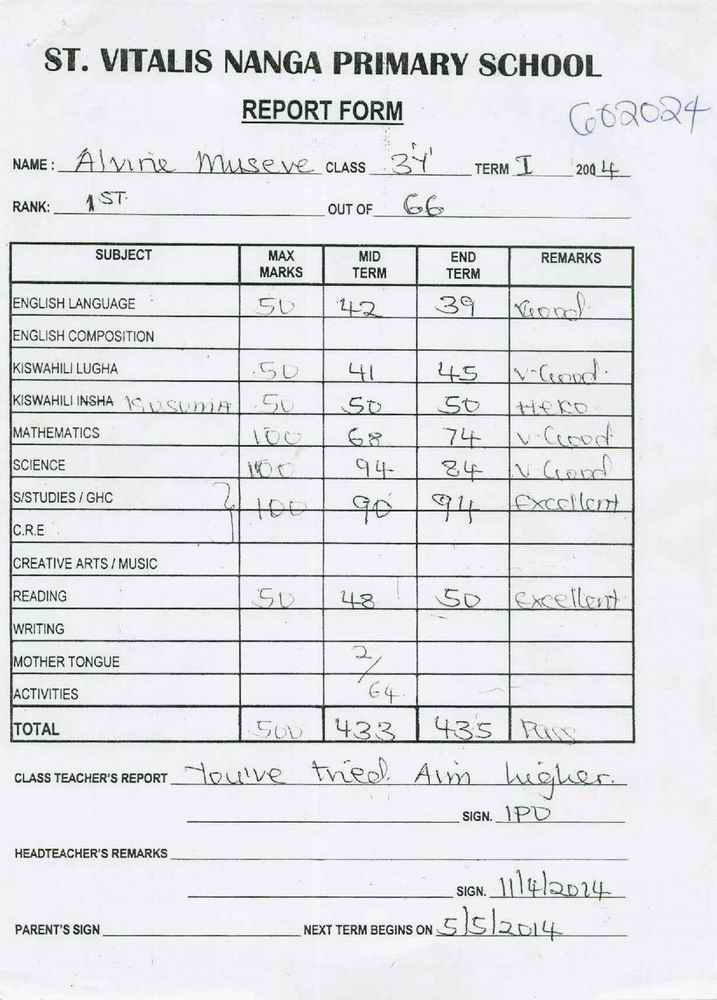 ST. VITALIS NANGA PRIMARY SCHOOL
REPORT FORM
602024
NAME: Alvine Museve CLASS 3'Y' TERM I 2004
RANK: 1ST. OUT OF 66
SUBJECT MAX MARKS MID TERM END TERM REMARKS
ENGLISH LANGUAGE 50 42 39 Good
ENGLISH COMPOSITION
KISWAHILI LUGHA 50 41 45 V-Good.
KISWAHILI INSHA KUSUMA 50 50 50 HEKO
MATHEMATICS 100 68 74 V-Good
SCIENCE 100 94 84 V Good
S/STUDIES / GHC 100 90 94 Excellent
C.R.E
CREATIVE ARTS / MUSIC
READING 50 48 50 Excellent
WRITING
MOTHER TONGUE 2/
ACTIVITIES 64
TOTAL 500 433 435 Pass
CLASS TEACHER'S REPORT You've tried. Aim higher.
SIGN. IPD
HEADTEACHER'S REMARKS
SIGN. 11/4/2014
PARENT'S SIGN NEXT TERM BEGINS ON 5/5/2014